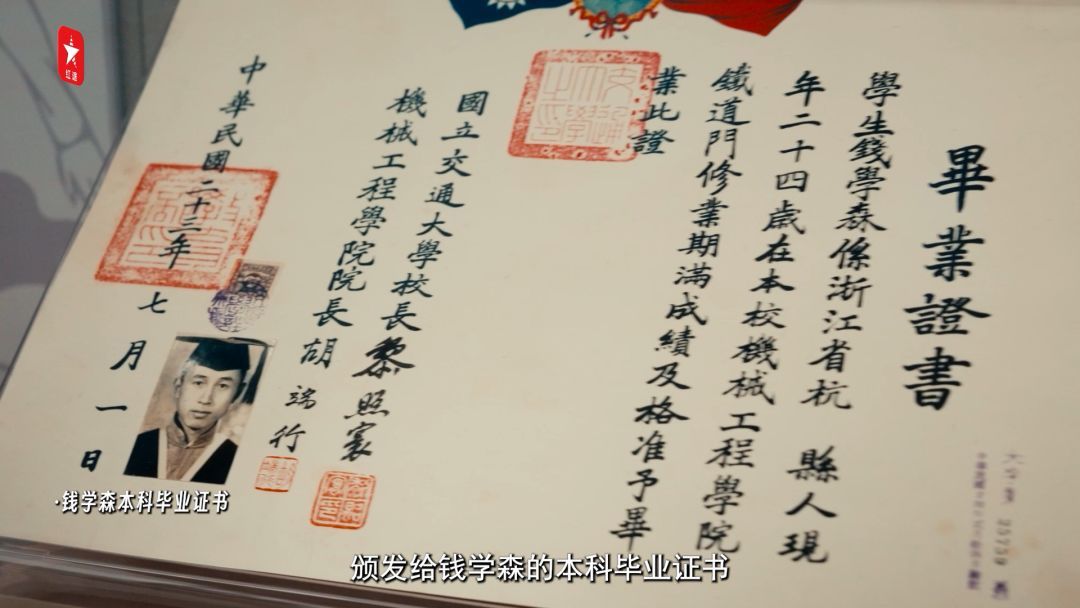 畢業證書
學生錢學森係浙江省杭縣人現
年二十四歲在本校機械工程學院
鐵道門修業期滿成績及格准予畢
業此證
國立交通大學校長黎照寰
機械工程學院院長胡端行
中華民國二十三年七月一日
红滴
·钱学森本科毕业证书
颁发给钱学森的本科毕业证书